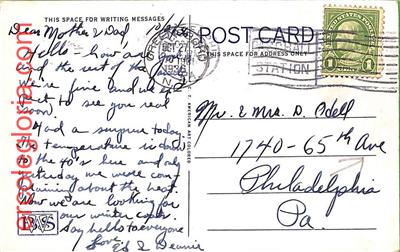 THIS SPACE FOR WRITING MESSAGES
POST CARD
THIS SPACE FOR
Dear Mother & Dad
Hello how are
and the rest of the
We're fine and
to see you real
soon.
Had a surprise today.
The temperature is down
to the 40's here and only
yesterday we were com-
plaining about the heat.
Now we are looking for
our winter coats.
Say hello to everyone
Love
Ed & Jeanie
Mr. & Mrs. D. Odell
1740-65th Ave
Philadelphia
Pa.
OCT 27
STATION
1
1
C. T. AMERICAN ART COLORED
artsalgloria.com